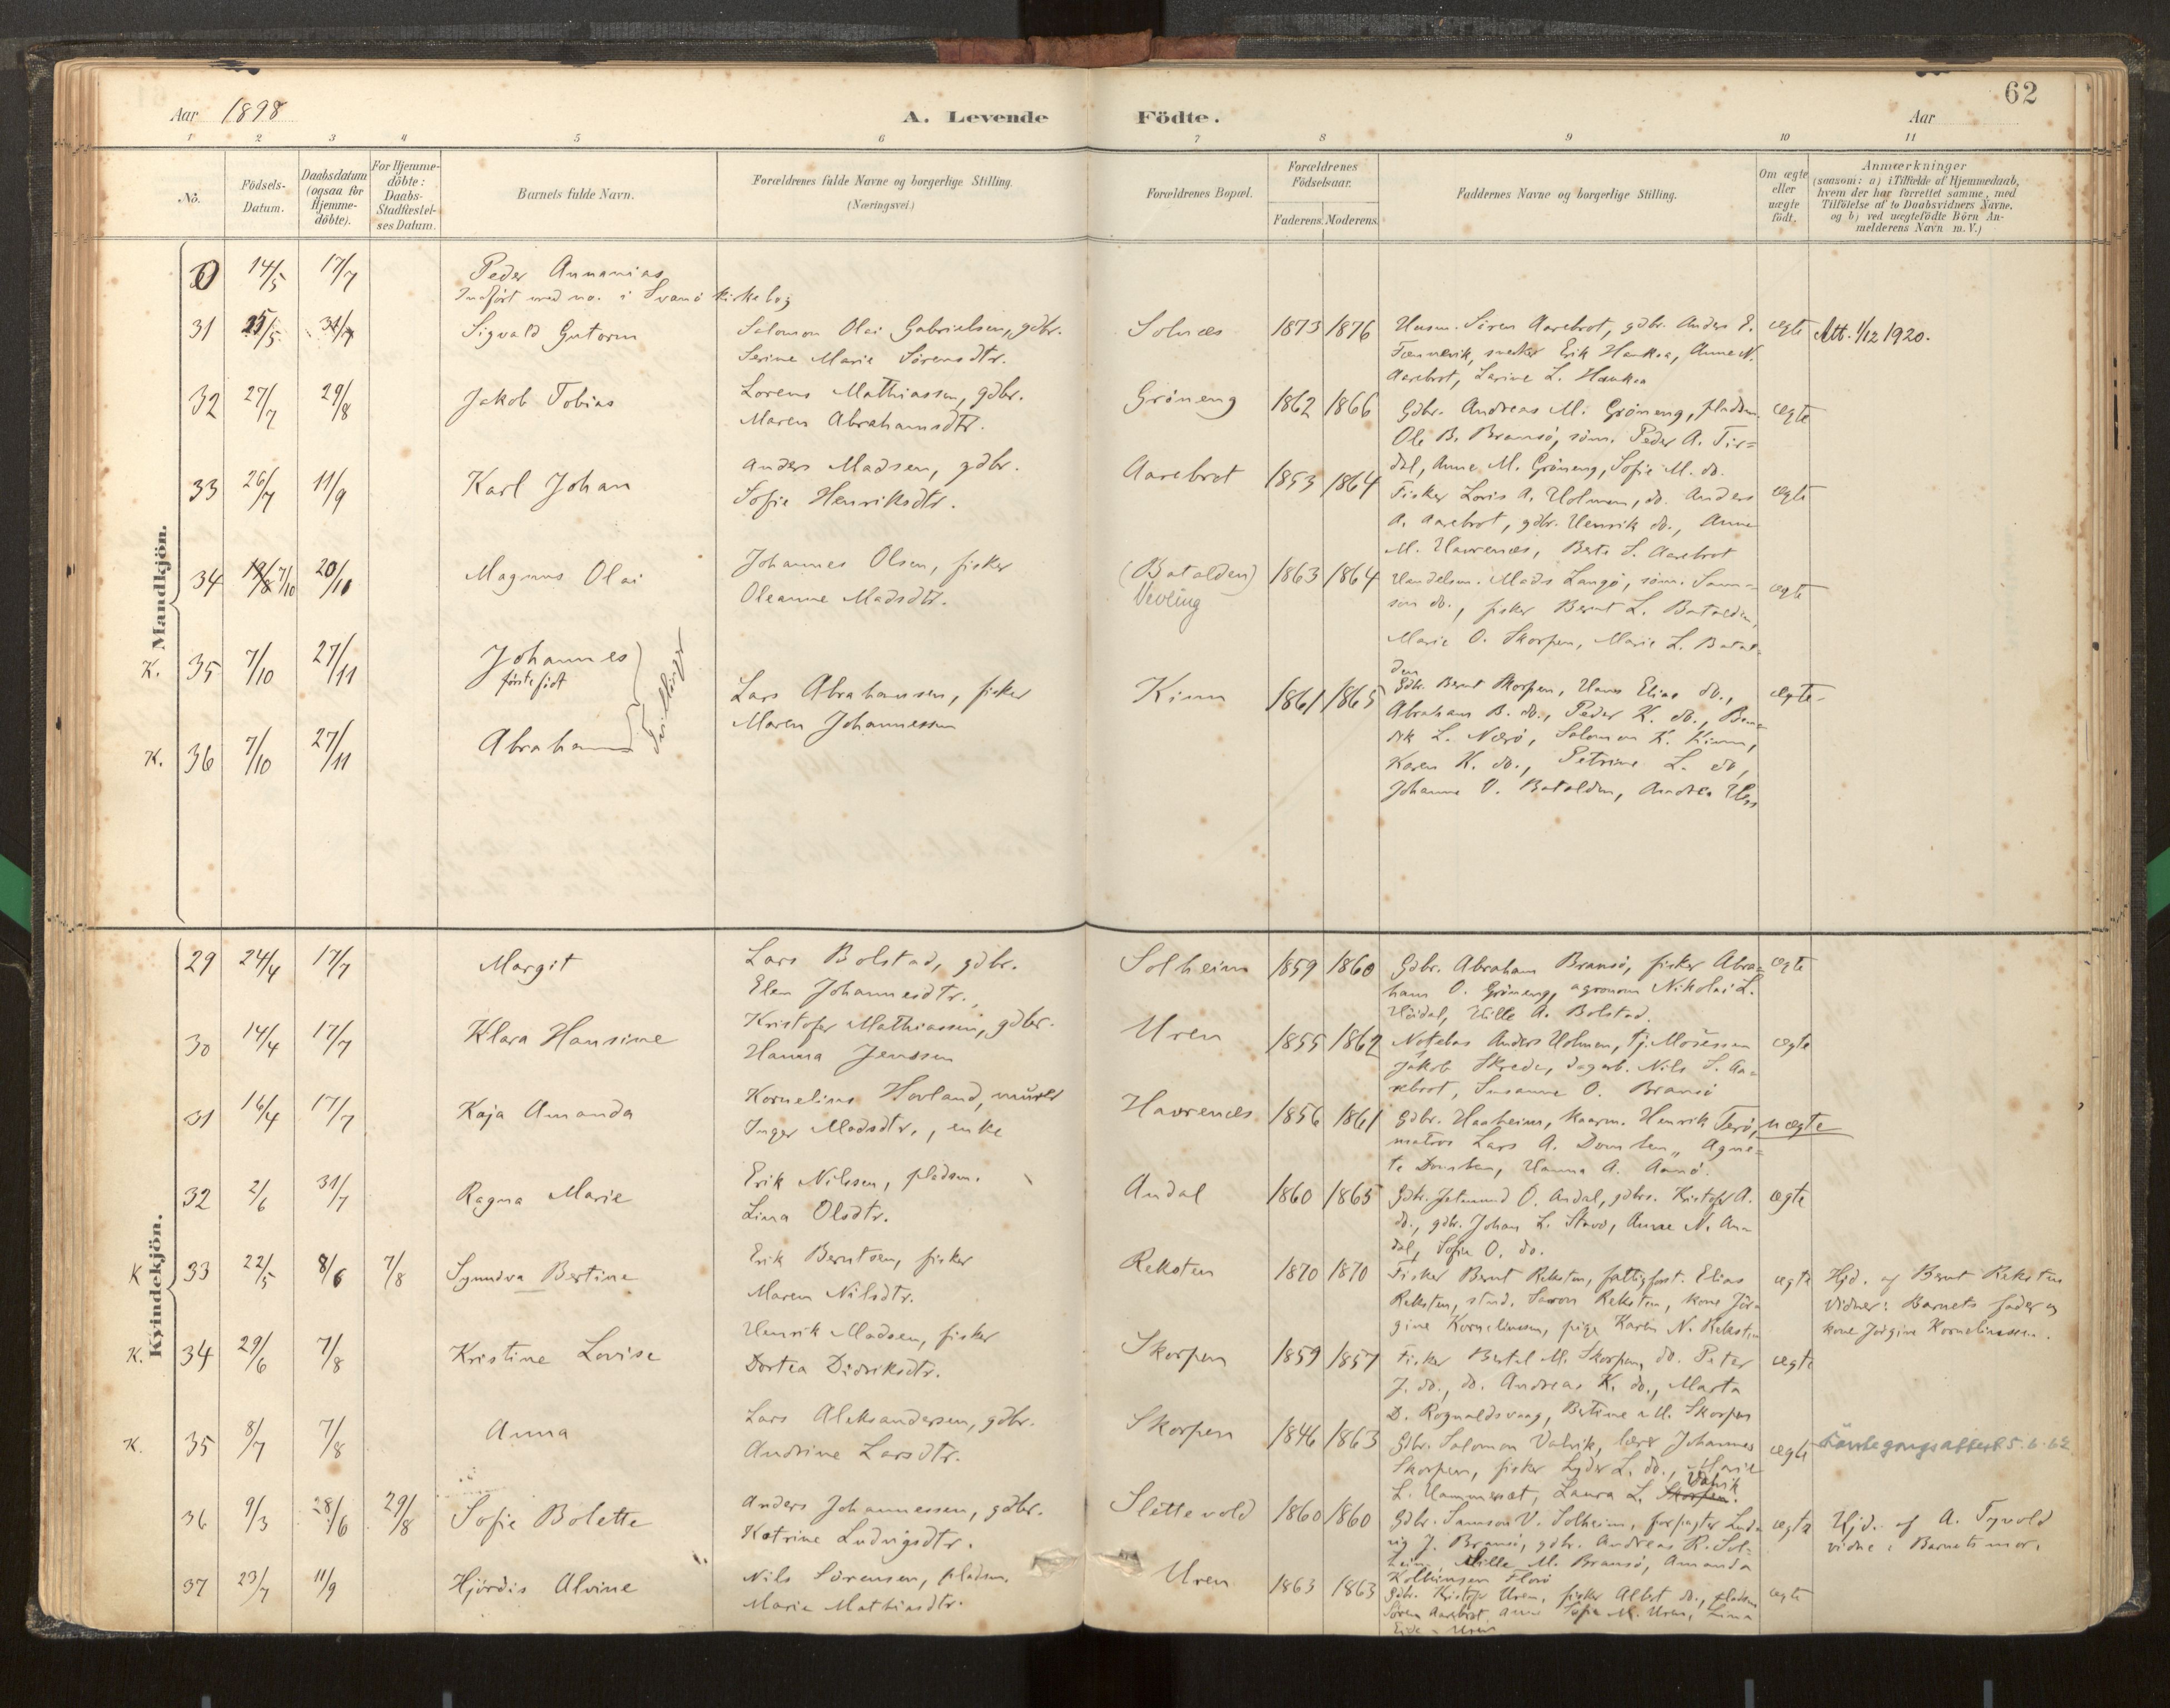 62
Aar 1898
A. Levende Födte.
Aar
1 2 3 4 5 6 7 8 9 10 11
No.
Födsels-Datum.
Daabsdatum (ogsaa for Hjemme-döbte).
For Hjemme-döbte: Daabs-Stadfæstel-ses Datum.
Barnets fulde Navn.
Forældrenes fulde Navne og borgerlige Stilling.
(Næringsvei.)
Forældrenes Bopæl.
Forældrenes Födselsaar.
Faderens. Moderens.
Faddernes Navne og borgerlige Stilling.
Om ægte eller uægte födt.
Anmærkninger
(saasom: a) i Tilfælde af Hjemmedaab,
hvem der har forrettet samme, med
Tilföielse af to Daabsvidners Navne.
og b) ved uægtefödte Börn An-
melderens Navn m. V.)
Mandkjön.
0 14/5 17/7 Peder Annanias
Indført med no. i Svanø kirkebog
31 25/5 31/7 Sigvald Gutorm
Salomon Olai Gabrielsen, gdbr.
Serine Marie Sørensdtr.
Solnæs 1873 1876
Husm. Søren Aarebrot, gdbr. Anders E.
snedker Erik Haukaa, Anne N.
Aarebrot, Larine L. Haukaa
ægte
Att. 1/12 1920.
32 27/7 29/8 Jakob Tobias
Lorens Mathiassen, gdbr.
Maren Abrahamsdtr.
Grøneng 1862 1866
Gdbr. Andreas M. Grøneng, pladsm.
Ole B. Bransø, søm. Peder A. Tir=
dal, Anne M. Grøneng, Sofie M. do.
ægte
33 26/7 11/9 Karl Johan
Anders Madsen, gdbr.
Sofie Henriksdtr.
Aarebrot 1853 1864
Fisker Loris A. Holmen, do. Anders
A. Aarebrot, gdbr. Henrik do., Anne
M. Havrenæs, Berte S. Aarebrot
ægte
34 19/8 7/10 20/11 Magnus Olai
Johannes Olsen, fisker
Oleanne Madsdtr.
(Batalden)
Vevling
1863 1864
Handelsm. Mads Langø, søm. Sam=
son do., fisker Bernt L. Batalden,
Marie O. Skorpen, Marie L. Batal-
den
ægte
K. 35 7/10 27/11 Johannes
førstefødt
Tvillinger
Lars Abrahamsen, fisker
Maren Johannessen
Kinn 1861 1865
Gdbr. Bernt Skorpen, Hans Elias do.,
Abraham B. do., Peder K. do., Ben=
dik L. Nærø, Salomon K. Kinn,
Karen K. do., Petrine L. do,
Johanne V. Batalden, Andrea
ægte
K. 36 7/10 27/11 Abraham
Kvindekjön.
29 24/4 17/7 Margit
Lars Bolstad, gdbr.
Elen Johannesdtr.
Solheim 1859 1860
Gdbr. Abraham Bransø, fisker Abra=
ham O. Grøneng, agronom Nikolai L.
Høidal, Hille A. Bolstad.
ægte
30 14/4 17/7 Klara Hansine
Kristofer Mathiassen, gdbr.
Hanna Jenssen
Uren 1855 1862
Notebas Anders Holmen, tj.
Jakob Skrede, dagarb. Nils S. Aa=
rebrot, Susanne O. Bransø
ægte
31 16/4 17/7 Kaja Amanda
Kornelius Hovland, murer
Inger Madsdtr., enke
Havrenæs 1856 1861
Gdbr. Haaheim, kaarm. Henrik Terø,
matros Lars A. Domben, Agne=
te Domben, Hanna A. Aarnø.
uægte
32 2/6 31/7 Ragna Marie
Erik Nilssen, pladsm.
Lina Olsdtr.
Andal 1860 1865
Gdbr. Jetmund O. Andal, gdbr. Kristofer A.
do., gdbr. Johan L. Stavø, Anne N. An=
dal, Sofie O. do.
ægte
K 33 22/5 8/6 7/8 Synneva Bertine
Erik Berntsen, fisker
Maren Nilsdtr.
Reksten 1870 1870
Fisker Bernt Reksten, fattigforst. Elias
Reksten, stud. Saron Reksten, kone Jør=
gine Korneliussen, pige Karen N. Reksten
ægte
Hjd. af Bernt Reksten
Vidner: Barnets fader og
kone Jørgine Korneliussen.
K. 34 29/6 7/8 Kristine Lovise
Henrik Madsen, fisker
Dortea Didriksdtr.
Skorpen 1859 1857
Fisker Bertel M. Skorpen, do. Peter
J. do., do. Andreas K. do., Marta
D. Rognaldsvaag, Bertine M. Skorpen
ægte
K. 35 8/7 7/8 Anna
Lars Aleksandersen, gdbr.
Andrine Larsdtr.
Skorpen 1846 1863
Gdbr. Salomon Valvik, lærer Johannes
Skorpen, fisker Lyder L. do., Marie
L. Hammerset, Laura L. Skorpen. Valvik
ægte
5.6.62
36 9/3 28/6 29/8 Sofie Bolette
Anders Johannessen, gdbr.
Katrine Ludvigsdtr.
Slettevold 1860 1860
Gdbr. Samson V. Solheim, forpagter Lud=
vig J. Bransø, gdbr. Andreas R. Sol=
heim, Mille M. Bransø, Amanda
Florø
ægte
Hjd. af A. Tyvold
vidne: Barnets mor.
37 23/7 11/9 Hjørdis Alvine
Nils Sørensen, pladsm.
Marie Mathiasdtr.
Uren 1863 1863
Gdbr. Kristofer Uren, fisker Albert do., pladsm.
Søren Aarebrot, Sofie M. Uren, Lina
Uren
ægte